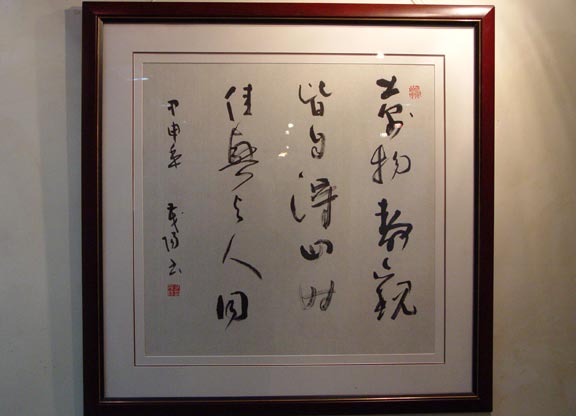 萬物靜觀
皆自得四時
佳興与人同
甲申年 書